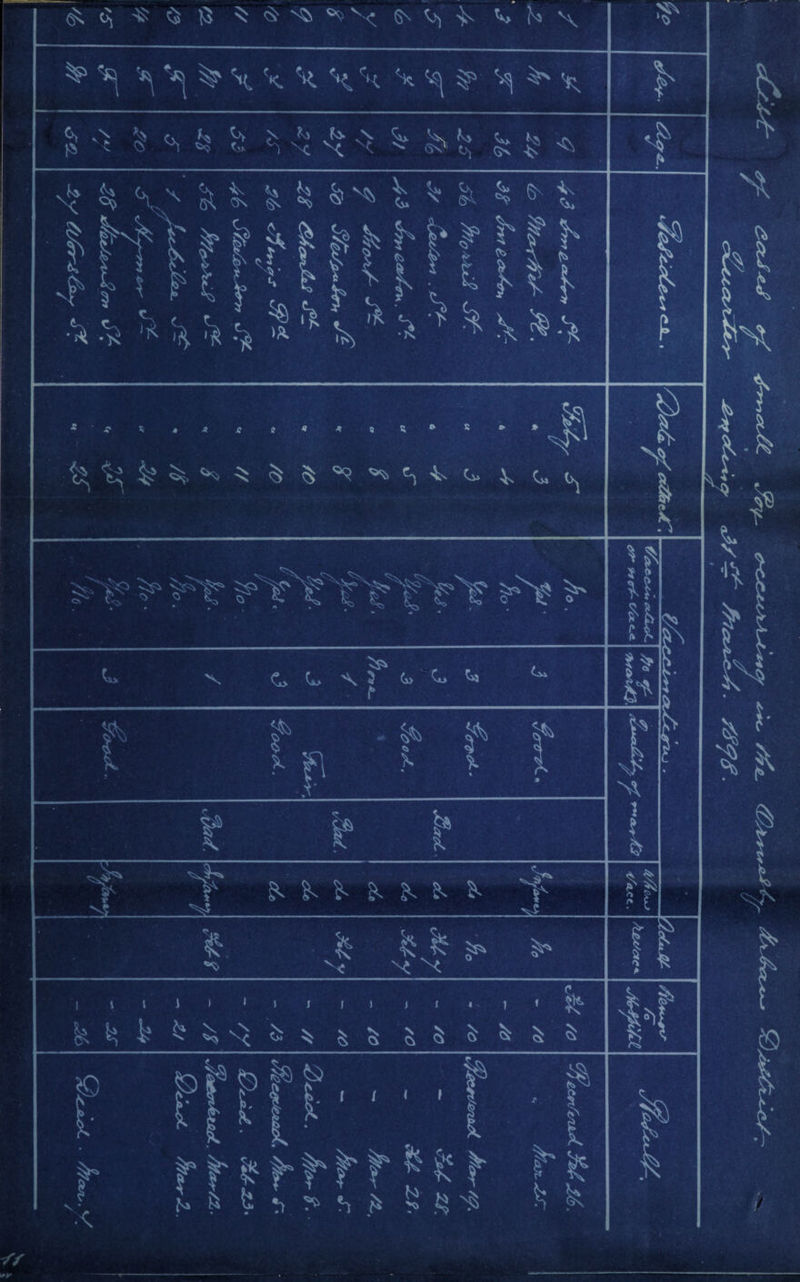 List of cases of Small Pox occurring in the Ormesby Urban District.
Quarter ending 31st March. 1898.
No Sex. Age. Residence. Date of attack. Vaccination. Adult revacc Remov to Hospital Result.
Vaccinated or not Vacc No of marks Quality of marks When Vacc.
1 F 9 43 Smeaton St. Feby 5 No. Feb 10 Recovered Feb. 26.
2 M 24 6 Market Pl. " 3 Yes 3 Good. Infancy No - 10 " Mar 25.
3 F 36 38 Smeaton St. " 4 No. - 10
4 M 25 56 Morris St. " 3 Yes. 3 Good. do No - 10 Recovered Mar 19.
5 F 56 31 St. " 4 Yes. 3 Bad. do Feb 7 - 10 - Feb 28.
6 F 31 43 Smeaton St " 5 Yes. 3 Good. do Feb 7 - 10 - Feb 28.
7 F 17 9 Short St " 8 Yes. None do - 10 - Mar 12.
8 F 27 50 Stevenson St " 8 Yes. 1. Bad. do Feb 7 - 10 - Mar 5.
9 F 27 28 Charles St " 10 Yes 3 Fair. do - 11 Died. Mar 8.
10 F 15 26 Kings Rd " 10 Yes. 3 Good. do - 13 Recovered Mar 5.
11 F 53 46 Stevenson St " 11 No. - 17 Died. Feb 23.
12 M 28 56 Morris St " 8 Yes. 1 Bad. Infancy Feb 8 - 18 Recovered. Mar 12.
13 F 5 1 Jubilee St " 18 No. - 21 Died Mar 2.
14 F 20 5 Hymer St " 24 No. - 24
15 F 17 28 Stevenson St. " 25 Yes. 3 Good. Infancy - 25
16 M 52 27 Worsley St. " 25 No. - 26 Died. Mar. 7.